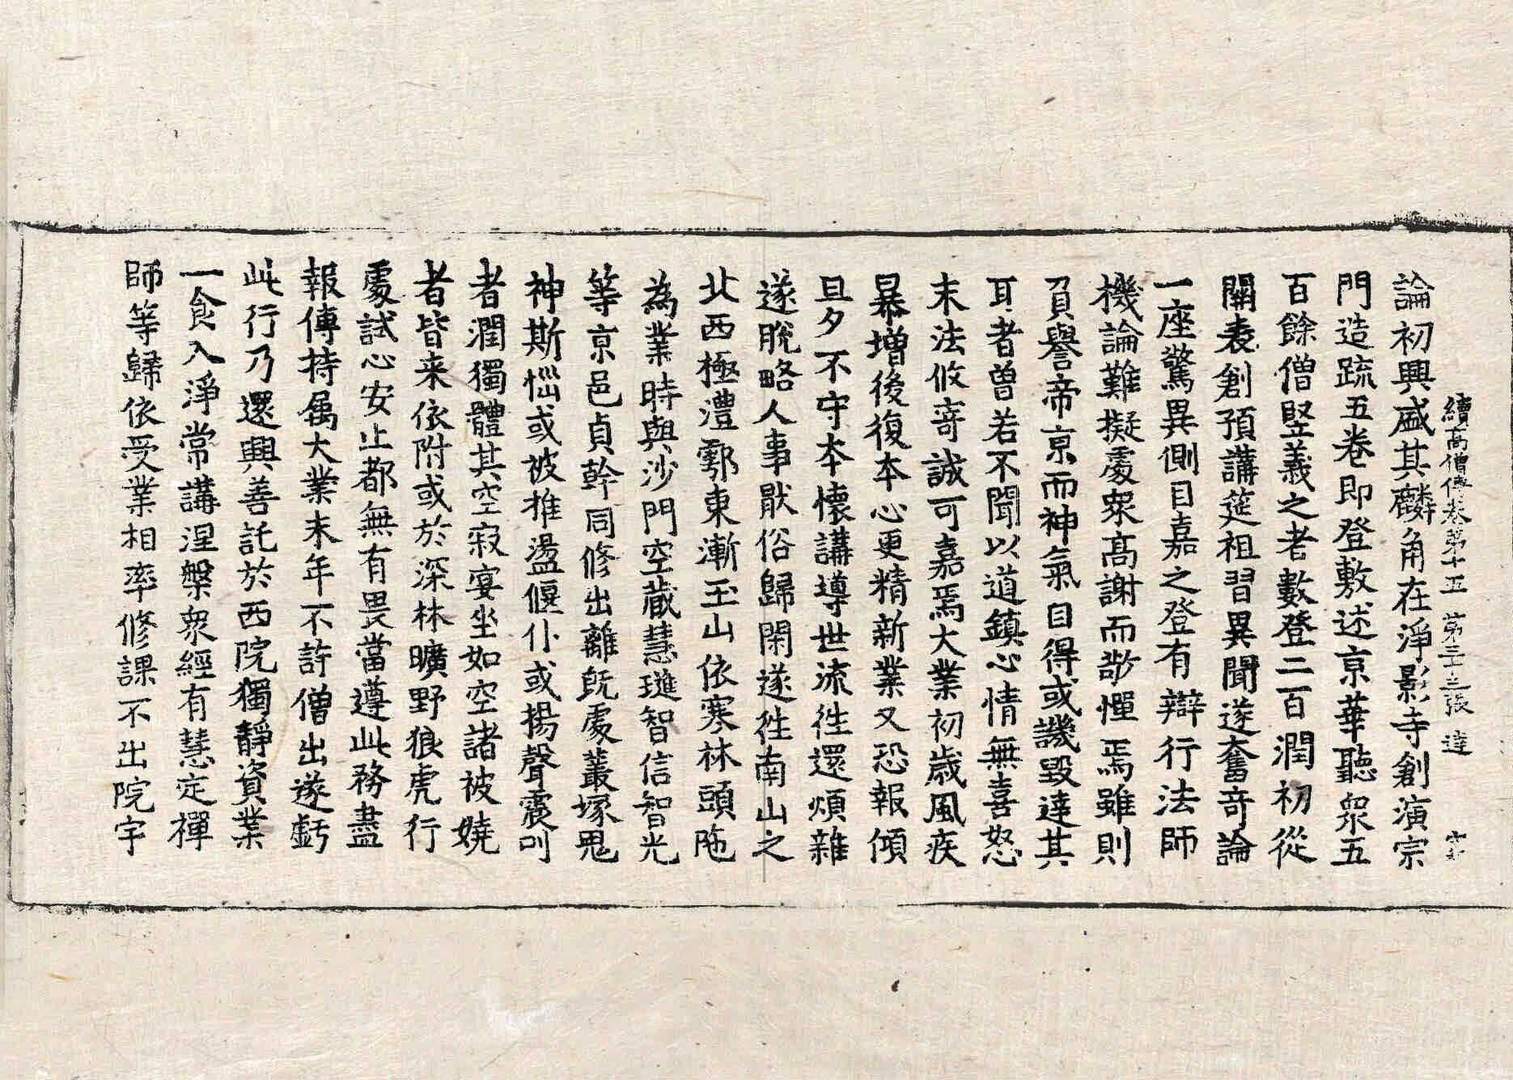 續高僧傳卷第十五 第三十三張 達
論初興盛其麟角在淨影寺創演宗
門造疏五卷即登敷述京華聽衆五
百餘僧竪義之者數登二百潤初從
關表創預講筵祖習異聞遂奮奇論
一座驚異側目嘉之登有辯行法師
機論難擬處衆高謝而敬憚焉雖則
負譽帝京而神氣自得或譏毀達其
耳者曾若不聞以道鎮心情無喜怒
末法攸寄誠可嘉焉大業初歲風疾
暴增後復本心更精新業又恐報傾
旦夕不守本懷講導世流徃還煩雜
遂脫略人事猒俗歸閑遂徃南山之
北西極澧鄠東漸玉山依寒林頭陁
為業時與沙門空藏慧璡智信智光
等京邑貞幹同修出離旣處叢塚鬼
神斯惱或被推盪偃仆或揚聲震叫
者潤獨體其空寂宴坐如空諸被嬈
者皆来依附或於深林曠野狼虎行
處試心安止都無有畏當遵此務盡
報傳持属大業末年不許僧出遂虧
此行乃還興善託於西院獨靜資業
一食入淨常講涅槃衆經有慧定禪
師等歸依受業相率修課不出院宇